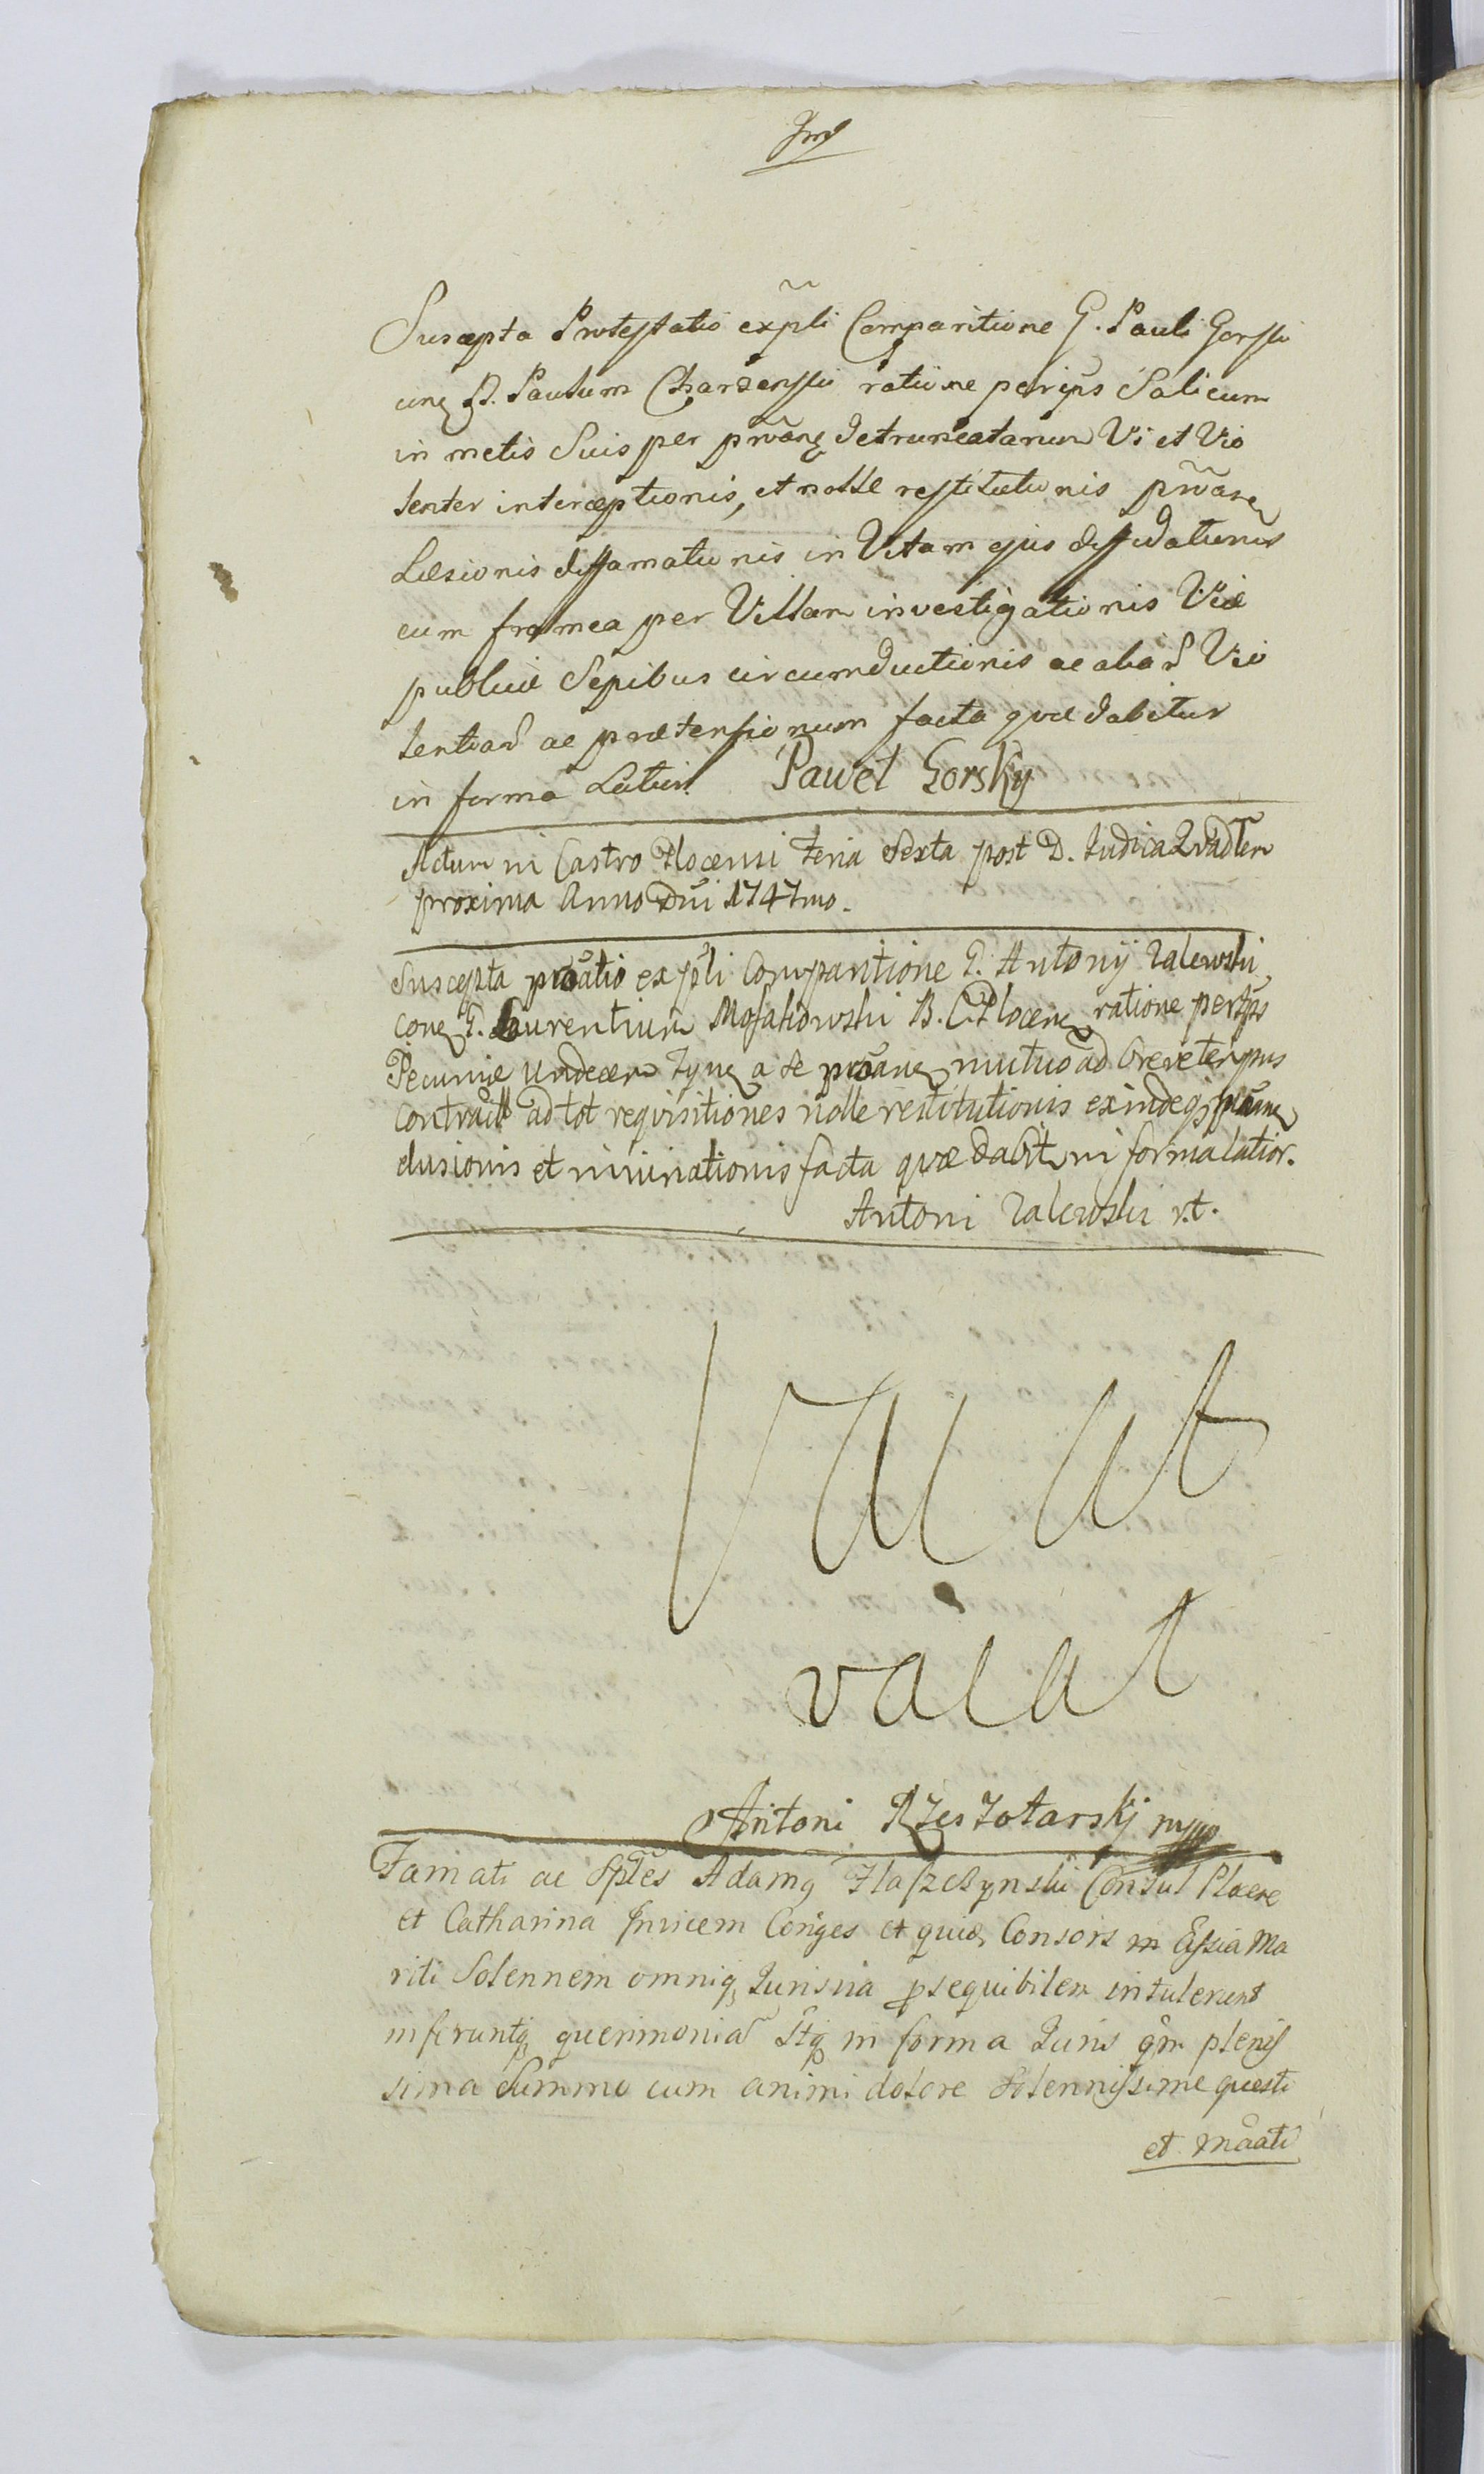 Suscepta Protestatio ex pli Comparitione G. Pauli Gorski
cong G. Paulum Charzenski ratione perceptis Salicum
in metis Suis per protang detruncatarum Vi et Vio
lenter interceptionis, et nolle restitutionis protane
Læsionis diffamationis in Vitam ejus diffidationis
cum framea per Villam investigationis Viæ
publicæ Sepibus circumductionis ac aliar Vio
lentiar ac prætensionum facta quæ dabitur
in forma Latiori Paweł Gorsky
Actum in Castro Plocensi Feria Sexta post D. Judica Quadlem
proxima Anno Dni 1747mo.
Suscepta protatio ex pli Comparitione G. Antonij Zalewski
cong G. Laurentium Mosakowski B. C. Plocen ratione
Pecuniæ undecem Tynf a se protane mutuo ad breve tempus
contract ad tot requisitiones nolle restitutionis exindeq protane
elusionis et minationis facta quæ dabit in forma latior.
Antoni Zalewski r.t.
Vacat
vacat
Antoni Rzeszotarskj mpp
Famati ac Sptles Adamq Flaszczynski Consul Plocen
et Catharina Invicem Conges et quid Consors in Assia Ma
riti Solennem omniq Juris via psequibilem intulerunt
inferuntq querimoniar Itq in forma Juris qm plenis
sima Summo cum animi dolore Solennissime questi
et maati